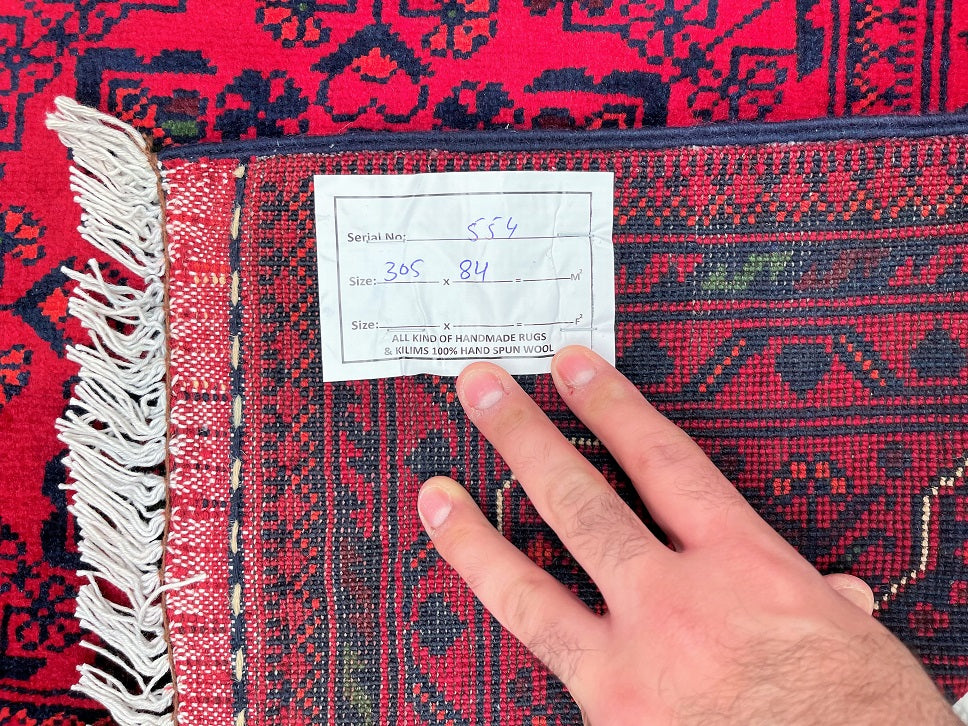 Serial No: 554
Size: 305 x 84 = M²
Size: x = F²
ALL KIND OF HANDMADE RUGS
& KILIMS 100% HAND SPUN WOOL